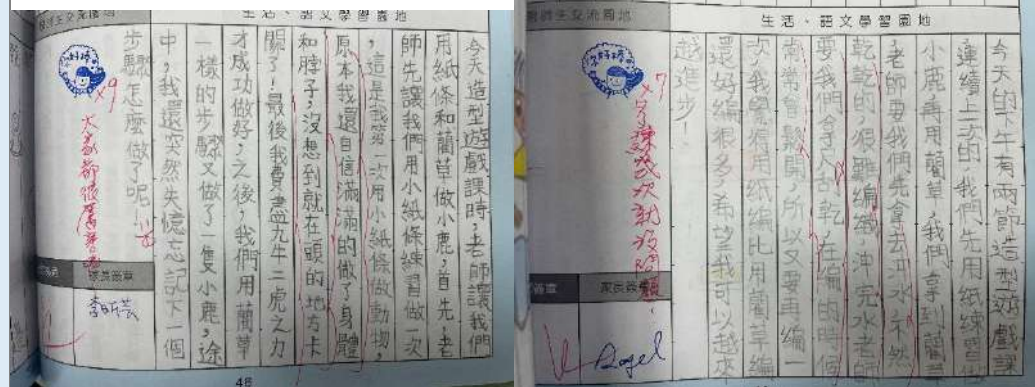 生活、語文學習園地
你好棒
x9
大家都很厲害喔
今天造型遊戲課時,老師讓我們
用紙條和藺草做小鹿,首先,老
師先讓我們用小紙條練習做一次
,這是我第一次用小紙條做動物,
原本我還自信滿滿的做了身體
和脖子,沒想到就在頭的地方卡
關了!最後我費盡九牛二虎之力
才成功做好,之後,我們用藺草
一樣的步驟又做了一隻小鹿,途
中,我還突然失憶忘記下一個
步驟怎麼做了呢!
家長簽章
48
生活、語文學習園地
你好棒
x7
多練幾次就沒問題!
今天的下午有兩節造型遊戲課
連續上一次的,我們先用紙練習做
小鹿再用藺草,我們拿到藺草
,老師要我們先拿去沖水,不然
乾乾的,很難編織,沖完水老師
要我們拿去
乾,在編的時候
常常會鬆開,所以又要再編一
次,我覺得用紙編比用藺草編
還好編很多,希望我可以越來
越進步!
家長簽章
Angel